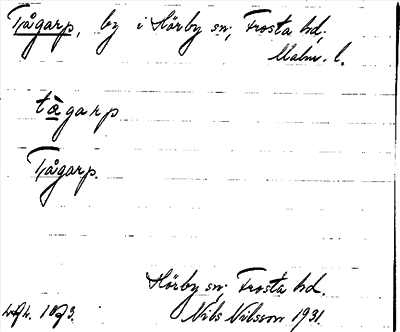 Tjågarp, by i Hörby sn, Frosta hd.
Malm. l.
tägarp
Tjågarp.
Hörby sn; Frosta hd.
Nils Nilsson 1931